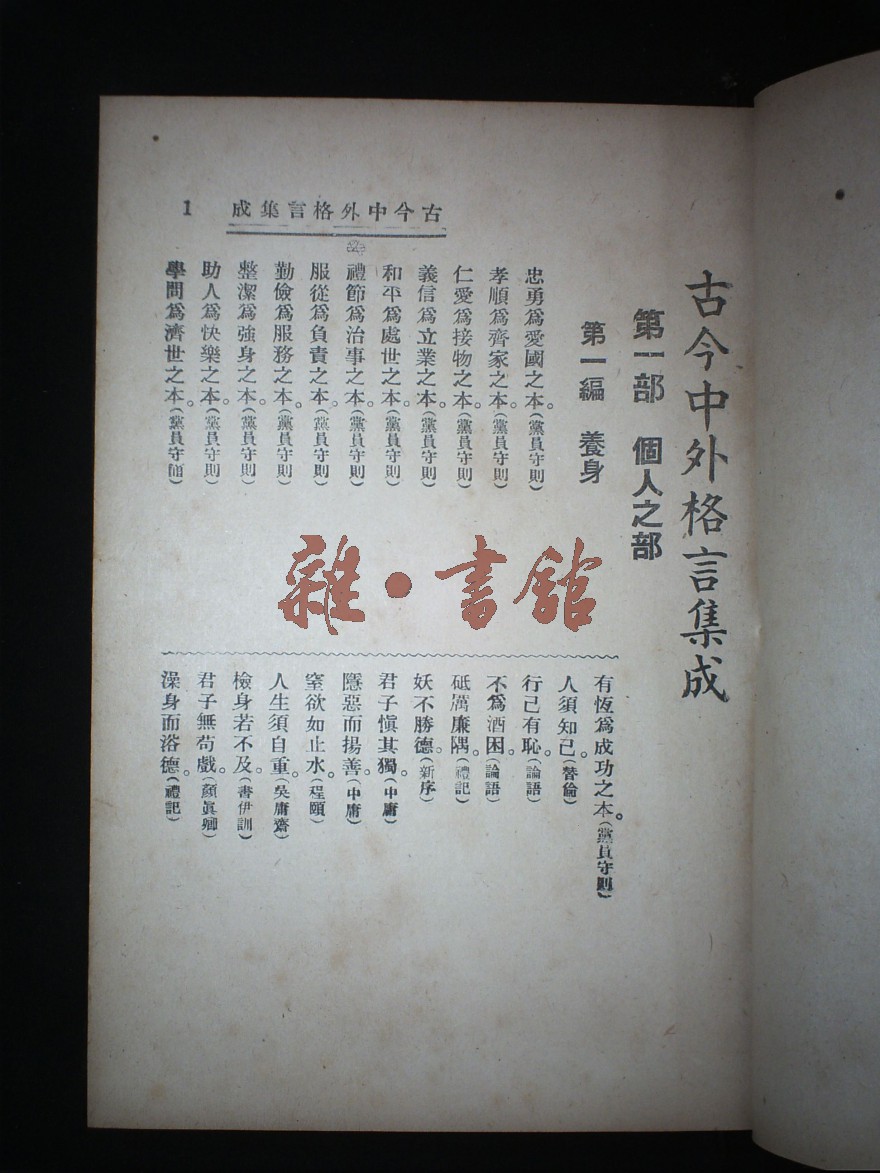 古今中外格言集成
1
古今中外格言集成
第一部 個人之部
第一編 養身
忠勇爲愛國之本。(黨員守則)
孝順爲齊家之本。(黨員守則)
仁愛爲接物之本。(黨員守則)
義信爲立業之本。(黨員守則)
和平爲處世之本。(黨員守則)
禮節爲治事之本。(黨員守則)
服從爲負責之本。(黨員守則)
勤儉爲服務之本。(黨員守則)
整潔爲強身之本。(黨員守則)
助人爲快樂之本。(黨員守則)
學問爲濟世之本。(黨員守則)
有恆爲成功之本。(黨員守則)
人須知己。(替倫)
行己有恥。(論語)
不爲酒困。(論語)
砥厲廉隅。(禮記)
妖不勝德。(新序)
君子愼其獨。(中庸)
隱惡而揚善。(中庸)
窒欲如止水。(程頤)
人生須自重。(吳庸齋)
檢身若不及。(書伊訓)
君子無苟戲。(顏眞卿)
澡身而浴德。(禮記)
雜·書館